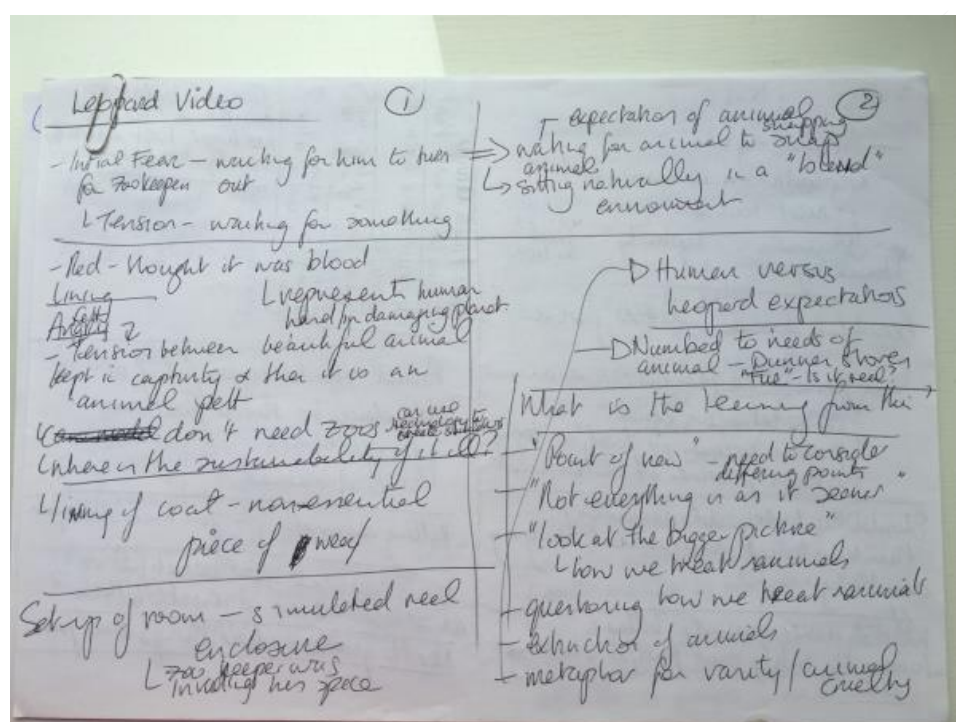 Leppard Video ①
- Initial Fear – waiting for him to turn
for zookeeper out
└ Tension – waiting for something
- Red – thought it was blood
Lining
└ represents human
hand in damaging planet
- Tension between beautiful animal
kept in captivity & then it is an
animal pelt
don't need zoos can use technology to create
└ where is the sustainability of it all?
└ lining of coat – nonessential
piece of wear
Set-up of room – simulated real
enclosure
└ zoo keeper was
invading his space
②
expectation of animal snapping
⇒ waiting for animal to snap
animal
↳ sitting naturally in a "blend"
enviroment
Human versus
leopard expectations
Numbed to needs of
animal –
"Fire" – Is it real?
What is the learning from this?
- "Point of view" – need to consider
differing points
- "Not everything is as it seems"
- "look at the bigger picture"
└ how we treat animals
- questioning how we treat animals
- extinction of animals
- metaphor for vanity / animal
cruelty